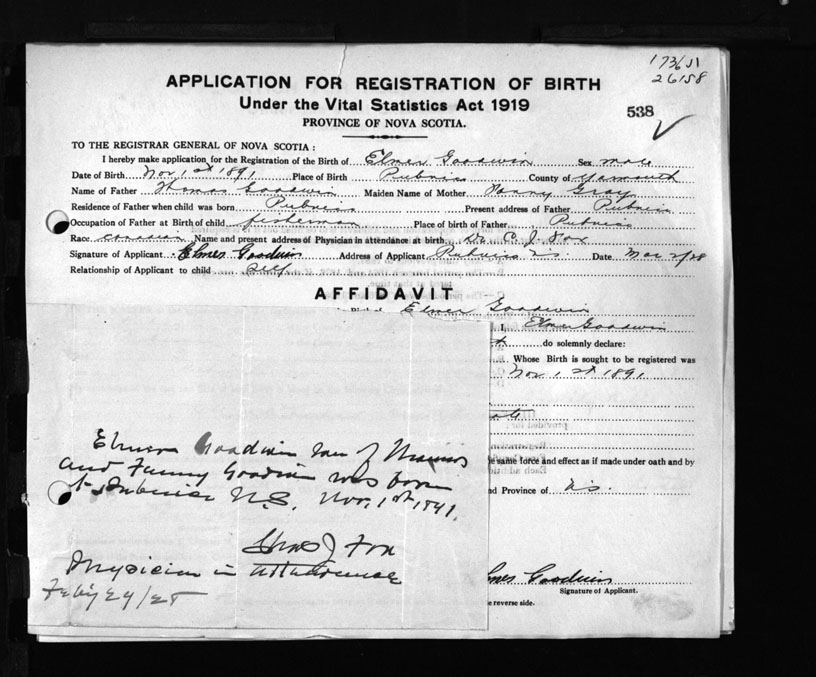 173651
26158
APPLICATION FOR REGISTRATION OF BIRTH
Under the Vital Statistics Act 1919
538
PROVINCE OF NOVA SCOTIA.
TO THE REGISTRAR GENERAL OF NOVA SCOTIA :
I hereby make application for the Registration of the Birth of Elmer Goodwin Sex male
Date of Birth Nov 1st 1891 Place of Birth Pubnico County of Yarmouth
Name of Father Thomas Goodwin Maiden Name of Mother Gray
Residence of Father when child was born Pubnico Present address of Father Pubnico
Occupation of Father at Birth of child fisherman Place of birth of Father Pubnico
Race Canadian Name and present address of Physician in attendance at birth Dr C. J. Fox
Signature of Applicant Elmer Goodwin Address of Applicant Pubnico N.S. Date Mar 2/28
Relationship of Applicant to child self
AFFIDAVIT
Elmer Goodwin
I, Elmer Goodwin
do solemnly declare:
Whose Birth is sought to be registered was
Nov 1st 1891
e same force and effect as if made under oath and by
nd Province of N.S.
Elmer Goodwin son of
and Fanny Goodwin was born
at Pubnico N.S. Nov. 1st 1891.
Chas J Fox
Physician in attendance
Elmer Goodwin
Signature of Applicant.
e reverse side.